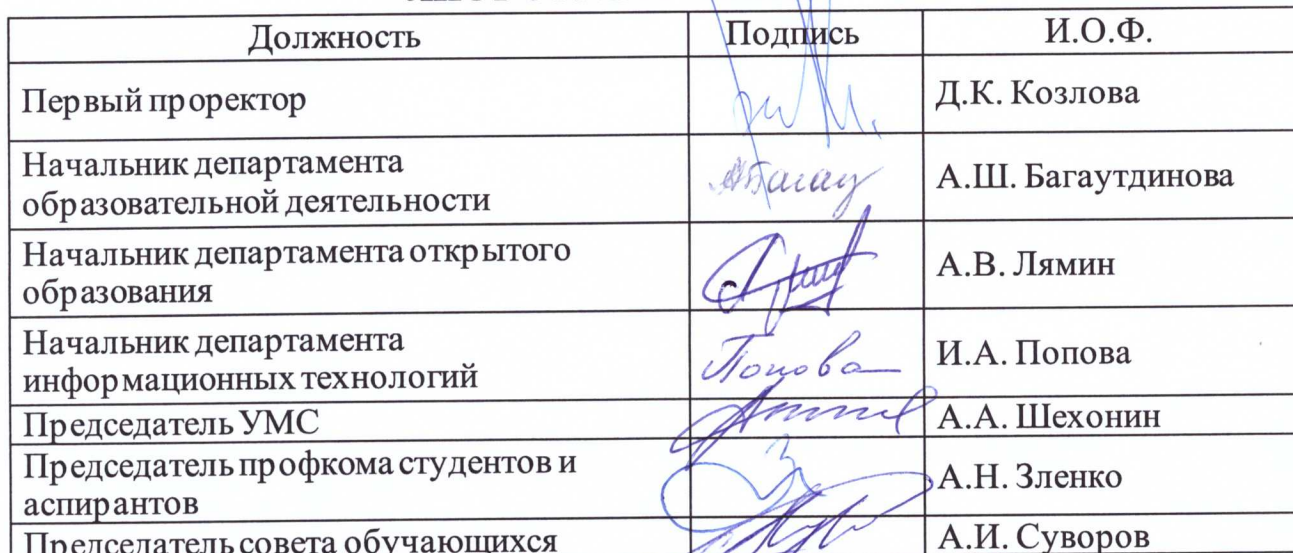 Должность Подпись И.О.Ф.
Первый проректор Д.К. Козлова
Начальник департамента
образовательной деятельности А.Ш. Багаутдинова
Начальник департамента открытого
образования А.В. Лямин
Начальник департамента
информационных технологий Попова И.А. Попова
Председатель УМС А.А. Шехонин
Председатель профкома студентов и
аспирантов А.Н. Зленко
Председатель совета обучающихся А.И. Суворов